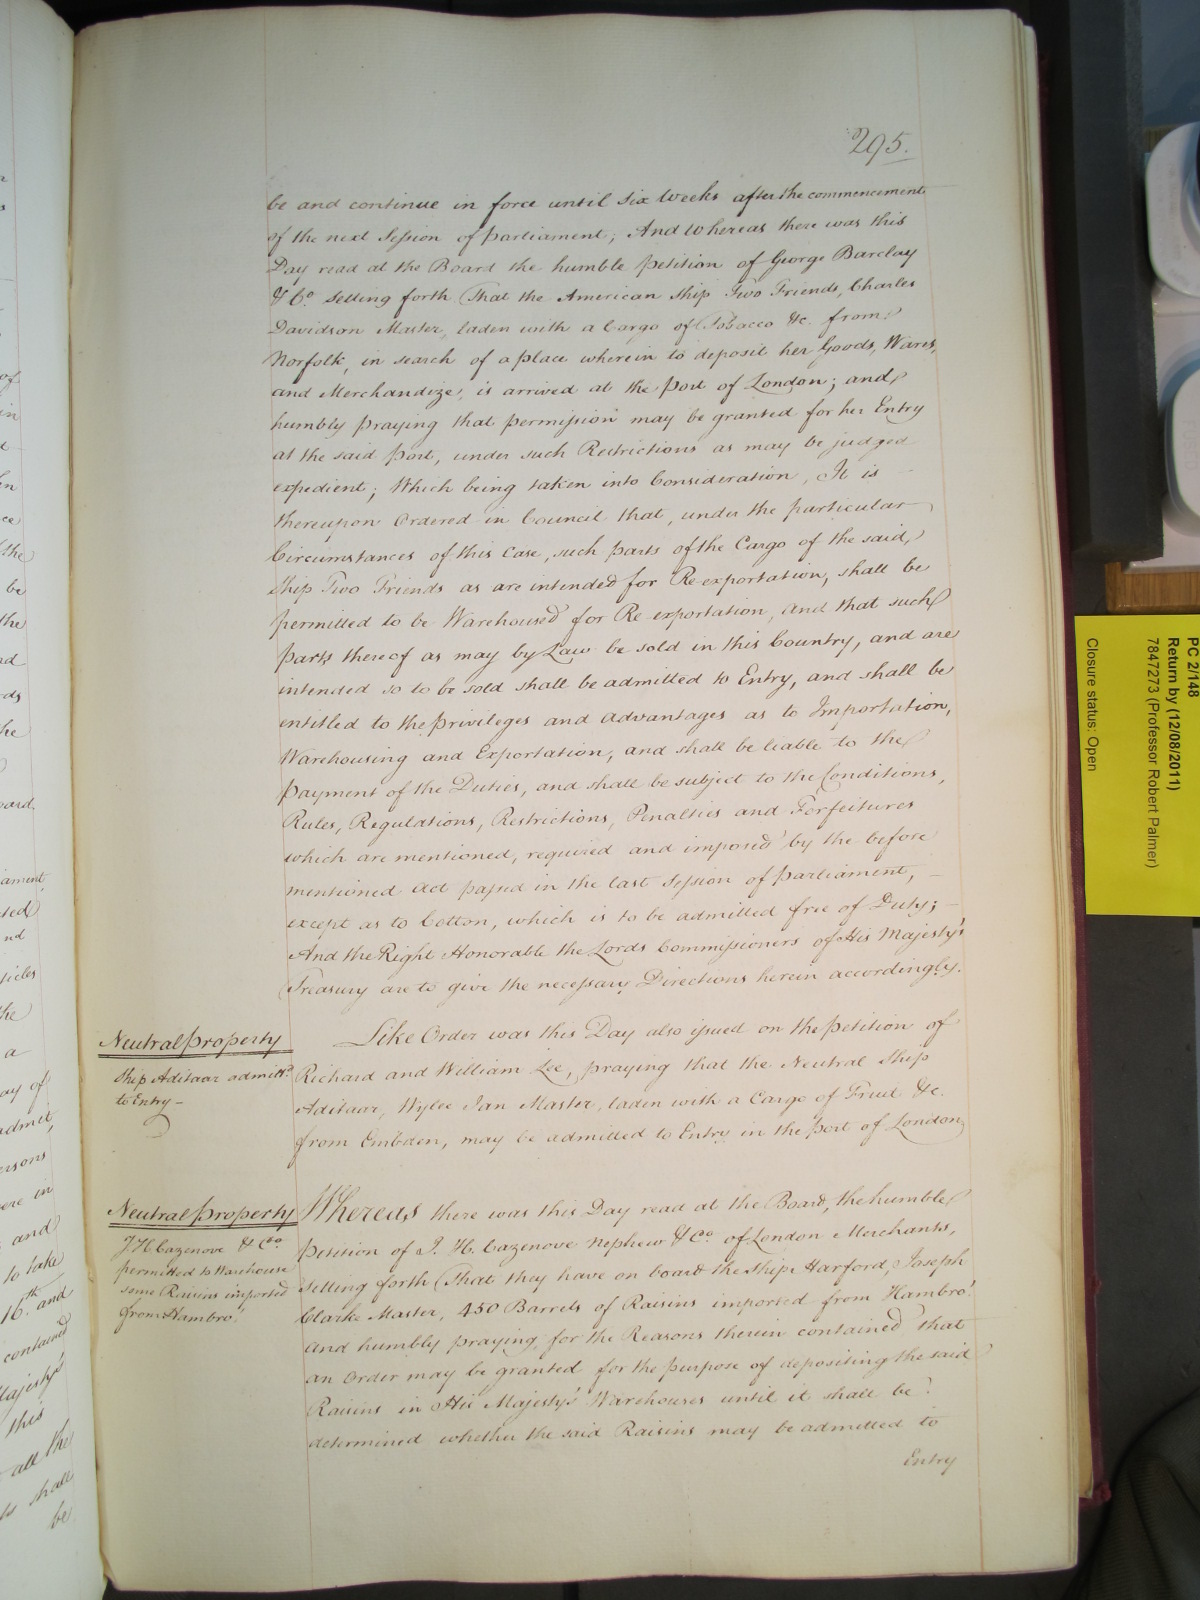 295.
be and continue in force until six weeks after the commencement
of the next Session of Parliament; And whereas there was this
Day read at the Board the humble Petition of George Barclay
& Co. setting forth That the American Ship Two Friends, Charles
Davidson Master, laden with a Cargo of Tobacco &c. from
Norfolk, in search of a place wherein to deposit her Goods, Wares,
and Merchandize, is arrived at the Port of London; and
humbly praying that permission may be granted for her Entry
at the said Port, under such Restrictions as may be judged
expedient; Which being taken into Consideration, It is
thereupon Ordered in Council that, under the particular
Circumstances of this Case, such parts of the Cargo of the said
Ship Two Friends as are intended for Re-exportation, shall be
permitted to be Warehoused for Re exportation, and that such
parts thereof as may by Law be sold in this Country, and are
intended so to be sold shall be admitted to Entry, and shall be
entitled to the Privileges and Advantages as to Importation,
Warehousing and Exportation, and shall be liable to the
payment of the Duties, and shall be subject to the Conditions,
Rules, Regulations, Restrictions, Penalties and Forfeitures
which are mentioned, required and imposed by the before
mentioned Act passed in the last Session of Parliament, –
except as to Cotton, which is to be admitted free of Duty; –
And the Right Honorable the Lords Commissioners of His Majesty's
Treasury are to give the necessary Directions herein accordingly.
Neutral property
Ship Aditaar admitt.d
to Entry –
Like Order was this Day also issued on the Petition of
Richard and William Lee, praying that the Neutral Ship
Aditaar, Wylee Jan Master, laden with a Cargo of Fruit &c.
from Embden, may be admitted to Entry in the Port of London,
Neutral property
J H Cazenove & Co.
permitted to Warehouse
some Raisins imported
from Hambro'
Whereas there was this Day read at the Board, the humble
Petition of J. H. Cazenove Nephew & Co. of London Merchants,
setting forth That they have on board the Ship Harford, Joseph
Clarke Master, 450 Barrels of Raisins imported from Hambro'
And humbly praying, for the Reasons therein contained that
an Order may be granted for the purpose of depositing the said
Raisins in His Majesty's Warehouses until it shall be
determined whether the said Raisins may be admitted to
Entry
PC 2/148
Return by (12/08/2011)
7847273 (Professor Robert Palmer)
Closure status: Open